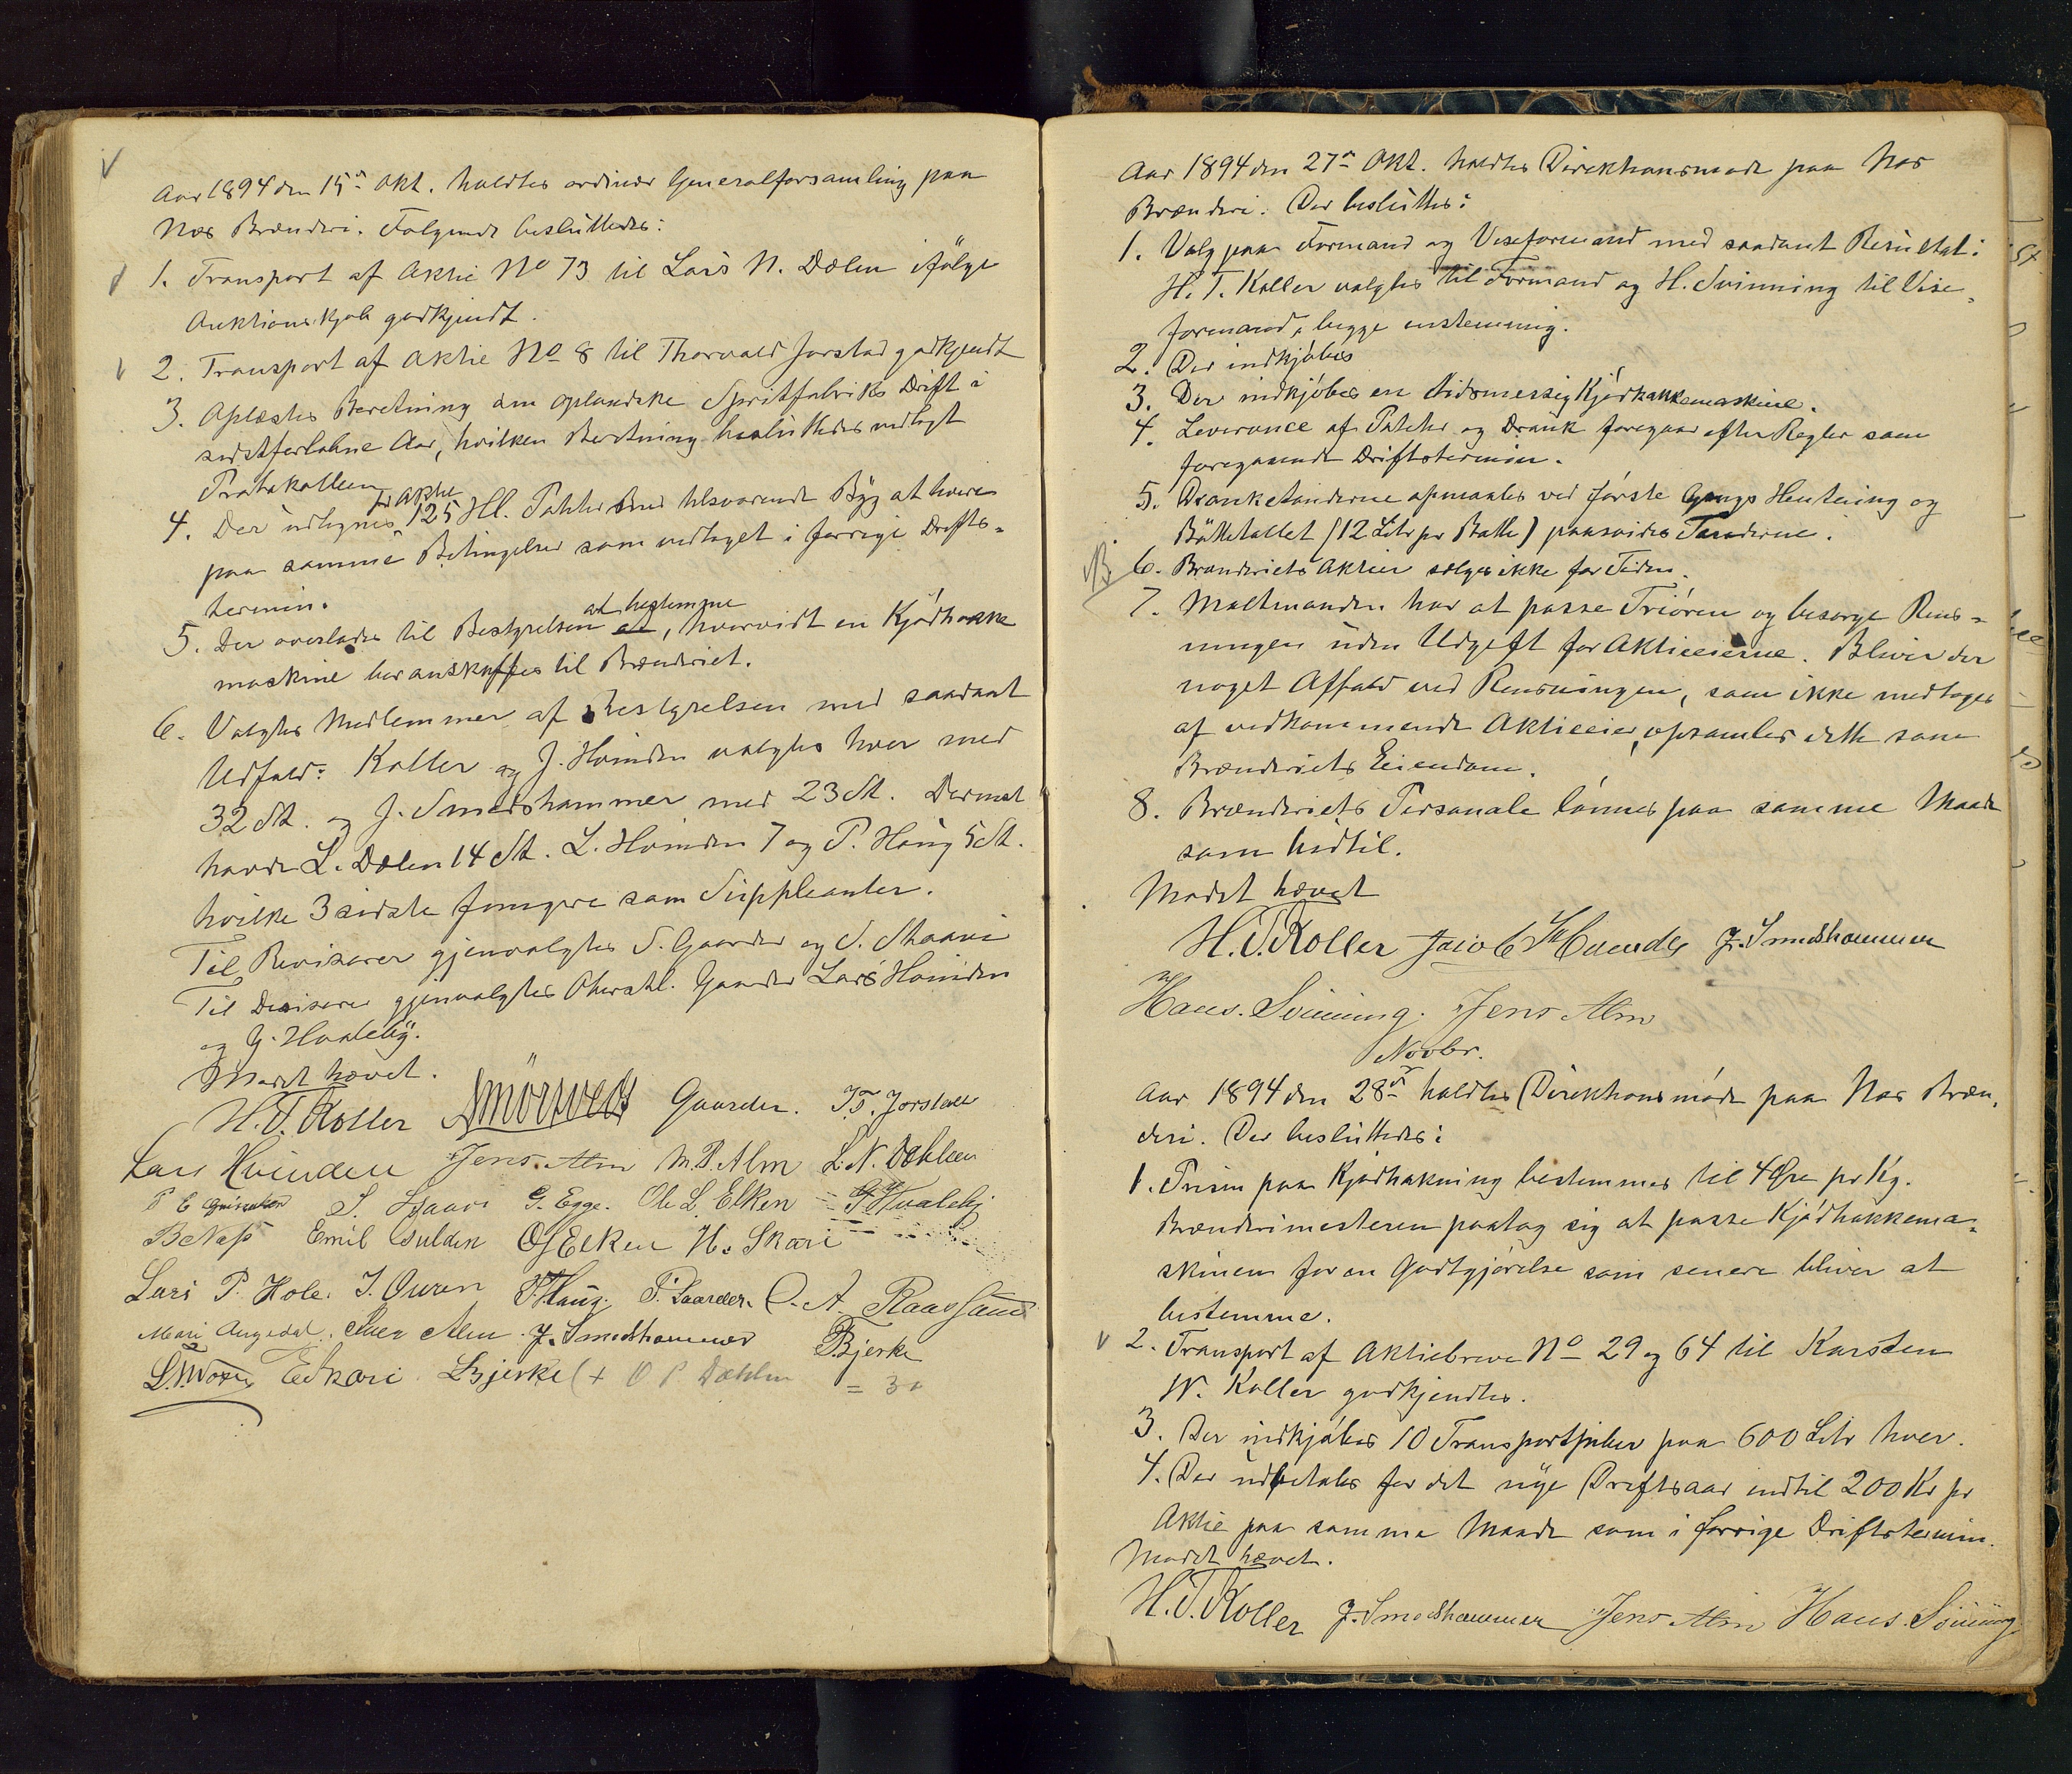 Aar 1894 den 15de Okt. holdtes ordinær Generalforsamling paa
Næs Brænderi. Følgende besluttedes:
1. Transport af Aktie No 73 til Lars N. Dælen ifølge
Auktionskjøb godkjendt.
2. Transport af Aktie No 8 til Thorvald Jorstad godkjendt
3. Oplæstes Beretning om oplandske Spritfabriks Drift i
sidstforløbne Aar, hvilken Beretning besluttedes vedlagt
Protokollen
pr Aktie
4. Der udlignes 125 Hl. Poteter med tilsvarende Byg at levere
paa samme Betingelser som vedtaget i forrige Drifts-
termin.
at bestemme
5. Der overlades til Bestyrelsen at, hvorvidt en Kjødhakke
maskine bør anskaffes til Brænderiet.
6. Valgtes Medlemmer af Bestyrelsen med saadant
Udfald: Koller og J. Hoinden valgtes hver med
32 St. og J. Smedshammer med 23 St. Dernæst
havde L. Dælen 14 St. L. Hoinden 7 og P. Haug 5 St.
hvilke 3 sidste fungere som Suppleanter.
Til Revisorer gjenvalgtes S. Gaarder og S. Skaari
Til Decisorer gjenvalgtes Oberstl. Gaarder Lars Hoinden
og G. Hvaleby.
Mødet hævet.
H. T. Koller Gaarder. T. T. Jorstad
Lars Hvinden Jens. Alm M. P. Alm L. N. Dæhlen
S. Skaari G. Egge. Ole L. Elken G. Hvaleby
B Næss Emil Gulden O J Elken H. Skari
Lars P. Hole. J. Ouren P. Haug. P. Gaarder. O. A.
Mari Alm J. Smedshammer Bjerke
E Skari L Bjerke (+ O P Dæhlen = 30
Aar 1894 den 27de Okt. holdtes Direktionsmøde paa Næs
Brænderi. Der besluttes:
1. Valg paa Formand og Viseformand med saadant Resultat:
H. T. Koller valgtes til Formand og H. Svinning til Vise-
formand, begge enstemmig.
2. Der indkjøbes
3. Der indkjøbes en tidsmessig Kjødhakkemaskine.
4. Leverance af Poteter og Drank foregaar efter Regler som
foregaaende Driftstermin.
5. Dranketønderne opmaales ved første Gangs Hentning og
Bøttetallet (12 Litr pr Bøtte) paasvides Tønderne.
6. Brænderiets Aktier sælges ikke for Tiden.
7. Maltmanden har at passe Triøren og besørge Rens-
ningen uden Udgift for Aktieeierne. Bliver der
noget Affald ved Rensningen, som ikke medtages
af vedkommende Aktieeier, opsamles dette som
Brænderiets Eiendom.
8. Brænderiets Personale lønnes paa samme Maade
som hidtil.
Mødet hævet
H. T. Koller Jacob Hvinden J. Smedshammer
Hans. Svinning. Jens Alm
Novbr.
Aar 1894 den 28de holdtes Direktionsmøde paa Næs Bræn-
deri. Der besluttedes:
1. Prisen paa Kjødhakning bestemmes til 4 Øre pr Kg.
Brænderimesteren paatog sig at passe Kjødhakkema-
skinen for en Godtgjørelse som senere bliver at
bestemme.
2. Transport af Aktiebreve No 29 og 64 til Karsten
W. Koller godkjendtes.
3. Der indkjøbes 10 Transportpiber paa 600 Litr hver.
4. Der udbetales for det nye Driftsaar indtil 200 Kr pr
Aktie paa samme Maade som i forrige Driftstermin.
Mødet hævet.
H. T. Koller J. Smedshammer Jens Alm Hans. Svinning